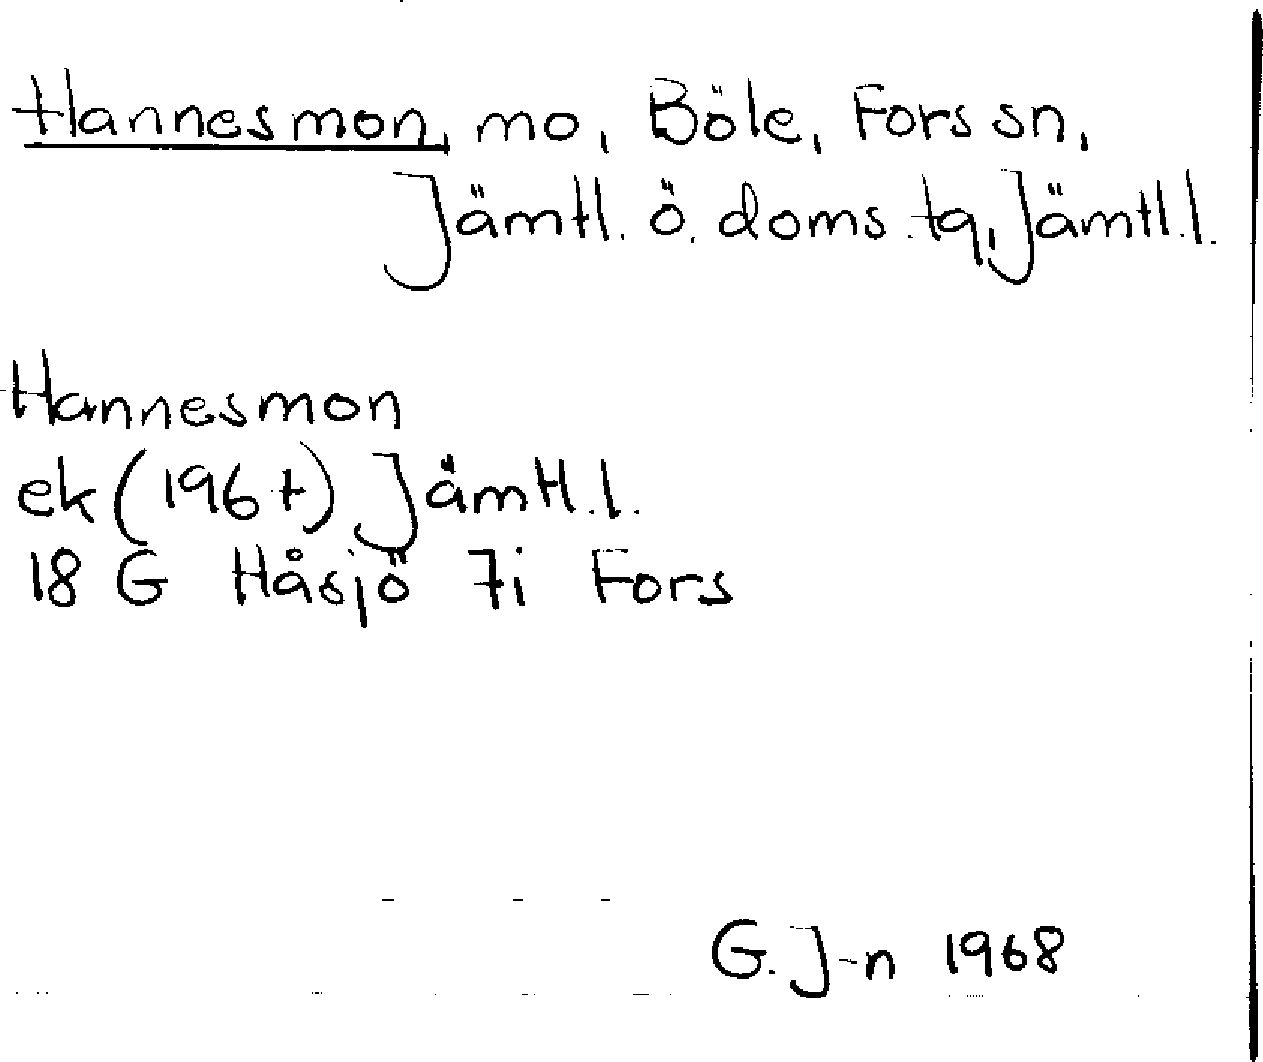 Hannesmon, mo, Böle, Fors sn,
Jämtl. ö. doms.tg, Jämtl.l.
Hannesmon
ek (196+) Jämtl.l.
18 G Håsjö 7i Fors
G. J-n 1968